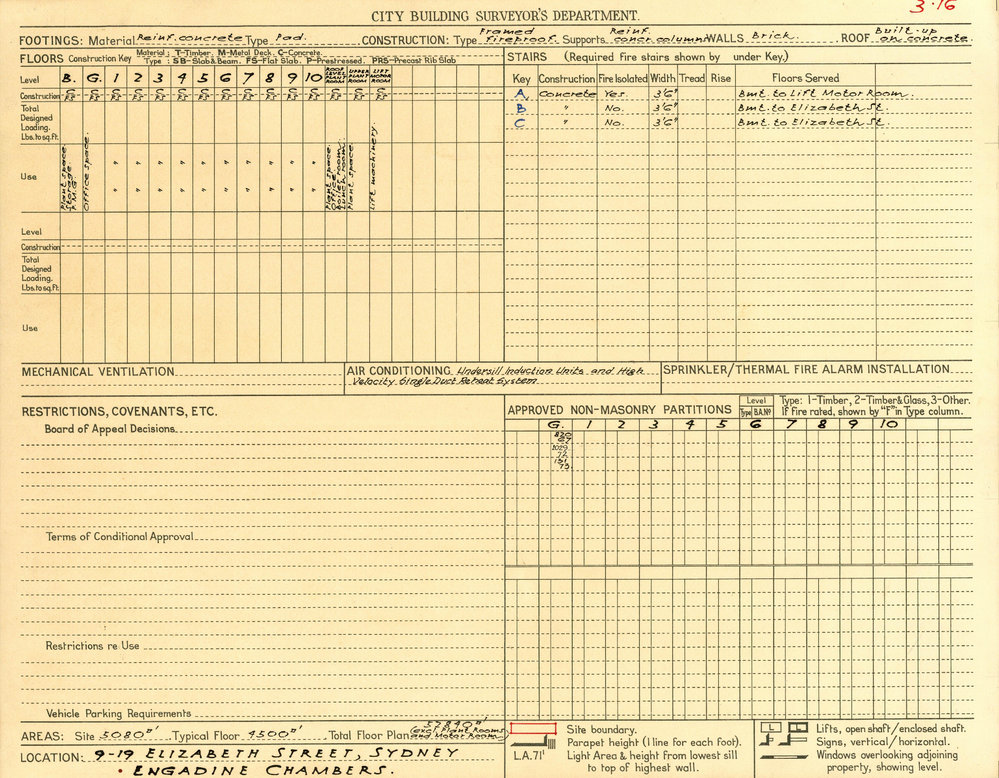 3·16
CITY BUILDING SURVEYOR'S DEPARTMENT.
FOOTINGS: Material Reinf. concrete Type Pad. CONSTRUCTION: Type Framed Fireproof. Supports Reinf. concr. column WALLS Brick. ROOF Built-up on concrete.
FLOORS Construction Key Material: T-Timber. M-Metal Deck. C-Concrete.
Type: SB-Slab & Beam. FS-Flat Slab. P-Prestressed. PRS-Precast Rib Slab
Level B. G. 1 2 3 4 5 6 7 8 9 10 ROOF LEVEL PLANT ROOM UPPER PLANT ROOM LIFT MOTOR ROOM
Construction C FS C FS C FS C FS C FS C FS C FS C FS C FS C FS C FS C FS C FS C FS C FS
Total Designed Loading. Lbs. to sq. ft.
Use Plant space. Storage. P.M.G. Office space. " " " " " " " " " " Plant space. Office. Boiler room. Lunch room. Plant space. Lift machinery
" " " " " " " " " "
Level
Construction
Total Designed Loading. Lbs. to sq. ft.
Use
STAIRS (Required fire stairs shown by under Key.)
Key Construction Fire Isolated Width Tread Rise Floors Served
A Concrete Yes. 3'6" Bmt. to Lift Motor Room.
B " No. 3'6" Bmt. to Elizabeth St.
C " No. 3'6" Bmt. to Elizabeth St.
MECHANICAL VENTILATION
AIR CONDITIONING Undersill Induction Units and High
Velocity Single Duct Reheat System
SPRINKLER/THERMAL FIRE ALARM INSTALLATION
RESTRICTIONS, COVENANTS, ETC.
Board of Appeal Decisions
Terms of Conditional Approval
Restrictions re Use
Vehicle Parking Requirements
APPROVED NON-MASONRY PARTITIONS Level Type B.A.Nº Type: 1-Timber, 2-Timber & Glass, 3-Other.
If fire rated, shown by "F" in Type column.
G. 1 2 3 4 5 6 7 8 9 10
820
67
1029
72
151
73
AREAS: Site 5080□' Typical Floor 4500□' Total Floor Plan 57890□' (excl. Plant Rooms and Motor Room)
LOCATION: 9-19 ELIZABETH STREET, SYDNEY
• ENGADINE CHAMBERS.
Site boundary.
Parapet height (1 line for each foot).
L.A. 71' Light Area & height from lowest sill
to top of highest wall.
L L Lifts, open shaft/enclosed shaft.
Signs, vertical/horizontal.
Windows overlooking adjoining
property, showing level.